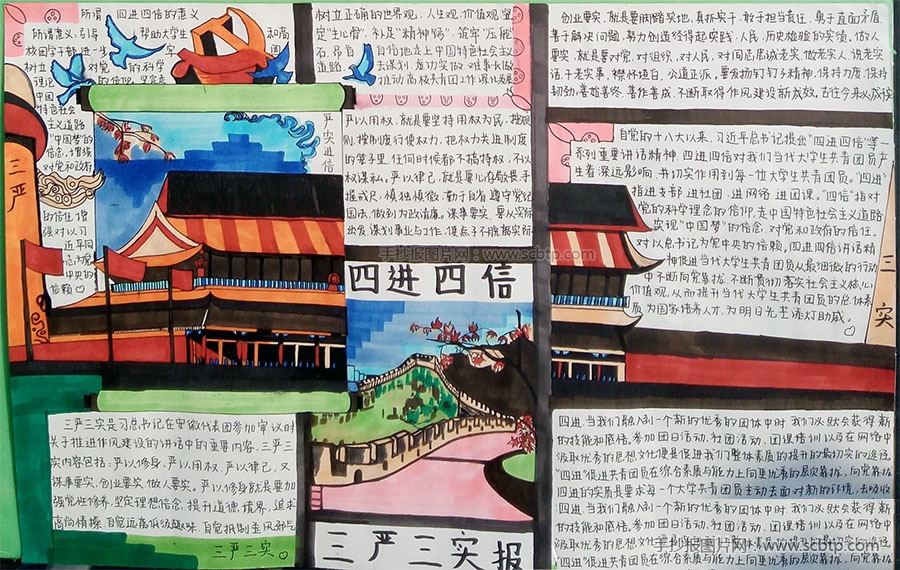 所谓"四进四信的意义
树立正确的世界观、人生观、价值观,坚
定"主心骨",补足"精神钙",筑牢"压舱
自信地走上中国特色社会主义
道路
推动高校共青团工作深化发展
创业要实,就是要脚踏实地,真抓实干,敢于担当责任,勇于直面矛盾,
善于解决问题,努力创造经得起实践、人民、历史检验的实绩,做人
要实,就是要对党、对组织、对人民、对同志忠诚老实,做老实人、说老实
话、干老实事,襟怀坦白,公道正派,要发扬钉钉子精神,保持力度、保持
韧劲,善始善终、善作善成,不断取得作风建设新成效。
三严
严实进信
严以用权,就是要坚持用权为民,按规
则、按制度行使权力,把权力关进制度
的笼子里,任何时候都不搞特权、不以
权谋私。严以律己,就是要心存敬畏、手
握戒尺,慎独慎微、勤于自省,遵守党纪
国法,做到为政清廉。谋事要实,要从实际
出发谋划事业与工作,使点子
自党的十八大以来,习近平总书记提出"四进四信"等一
系列重要讲话精神,四进四信对我们当代大学生共青团员产
生着深远影响,并切实作用到每一位大学生共青团员。"四进"
指进支部、进社团、进网络、进团课。"四信"指对
党的科学理念的信仰,走中国特色社会主义道路
实现"中国梦"的信念,对党和政府的信任,
对以总书记为党中央的信赖。四进四信讲话精
神促进当代大学生共青团员从最细微的行动
中不断向党靠拢,不断贯彻落实社会主义核心
价值观,从而提升当代大学生共青团员的总体素
质,为国家培养人才,为明日先圣添灯助威。
三
实
手抄报图片网:www.scbtp.com
四进四信
三严三实是习总书记在安徽代表团参加审议时
关于推进作风建设的讲话中的重要内容,三严三
实内容包括:严以修身、严以用权、严以律己,又
谋事要实、创业要实、做人要实。严以修身就是要加
强党性修养,坚定理想信念,提升道德境界,追求
高尚情操,自觉远离低级趣味,自觉抵制歪风邪气
三严三实。
三严三实报
四进,当我们融入到一个新的优秀的团体中时,我们必然会获得新
的技能和感悟,参加团日活动、社团活动、团课培训以及在网络中
汲取优秀的思想文化便是促进我们整体素质的提升的最切实的途径
"四进"很促进共青团员在综合素质与能力上向更优秀的层次靠拢,向党靠拢
四进的实质是要求每一个大学共青团员主动去面对新的环境,去吸收
四进,当我们融入到一个新的优秀的团体中时,我们必然会获得新
的技能和感悟,参加团日活动、社团活动、团课培训以及在网络中
汲取优秀的思想文化
"四进"很促进共青团员在综合素质与能力上向更优秀的层次靠拢,向党靠拢
手抄报图片网:www.scbtp.com